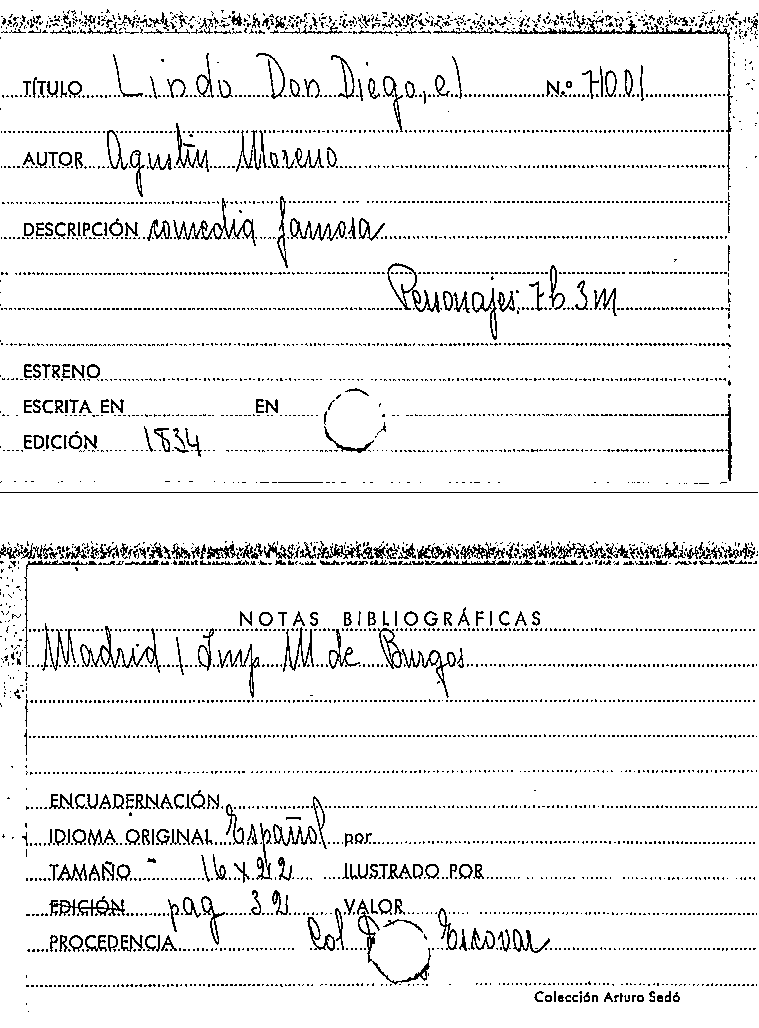 TÍTULO Lindo Don Diego, el N.º 71001
AUTOR Agustín Moreno
DESCRIPCIÓN comedia famosa
Personajes: 7h 3m
ESTRENO
ESCRITA EN EN
EDICIÓN 1834
NOTAS BIBLIOGRÁFICAS
Madrid / Imp M de Burgos
ENCUADERNACIÓN
IDIOMA ORIGINAL Español por
TAMAÑO 16 x 22 ILUSTRADO POR
EDICIÓN pag 32 VALOR
PROCEDENCIA Col Escovar
Colección Arturo Sedó